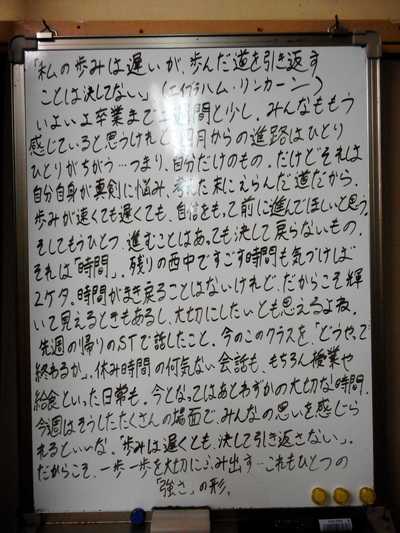 「私の歩みは遅いが、歩んだ道を引き返す
ことは決してない」(エイブラハム・リンカーン)
いよいよ卒業まで2週間と少し。みんなももう
感じていると思うけれど、4月からの進路はひとり
ひとりがちがう…つまり、自分だけのもの。だけどそれは
自分自身が真剣に悩み、考えた末にえらんだ道だから。
歩みが速くても遅くても、自信をもって前に進んでほしいと思う。
そしてもうひとつ、進むことはあっても決して戻らないもの。
それは「時間」。残りの西中ですごす時間も気づけば
2ケタ。時間がまき戻ることはないけれど、だからこそ輝
いて見えるときもあるし、大切にしたいとも思えるよね。
先週の帰りのSTで話したこと。今のこのクラスを、「どうやって
終わるか」。休み時間の何気ない会話も、もちろん授業や
給食といった日常も。今となってはあとわずかの大切な時間。
今週はそうしたたくさんの場面で、みんなの思いを感じら
れるといいな。「歩みは遅くとも、決して引き返さない」。
だからこそ、一歩一歩を大切にふみ出す…これもひとつの
「強さ」の形。